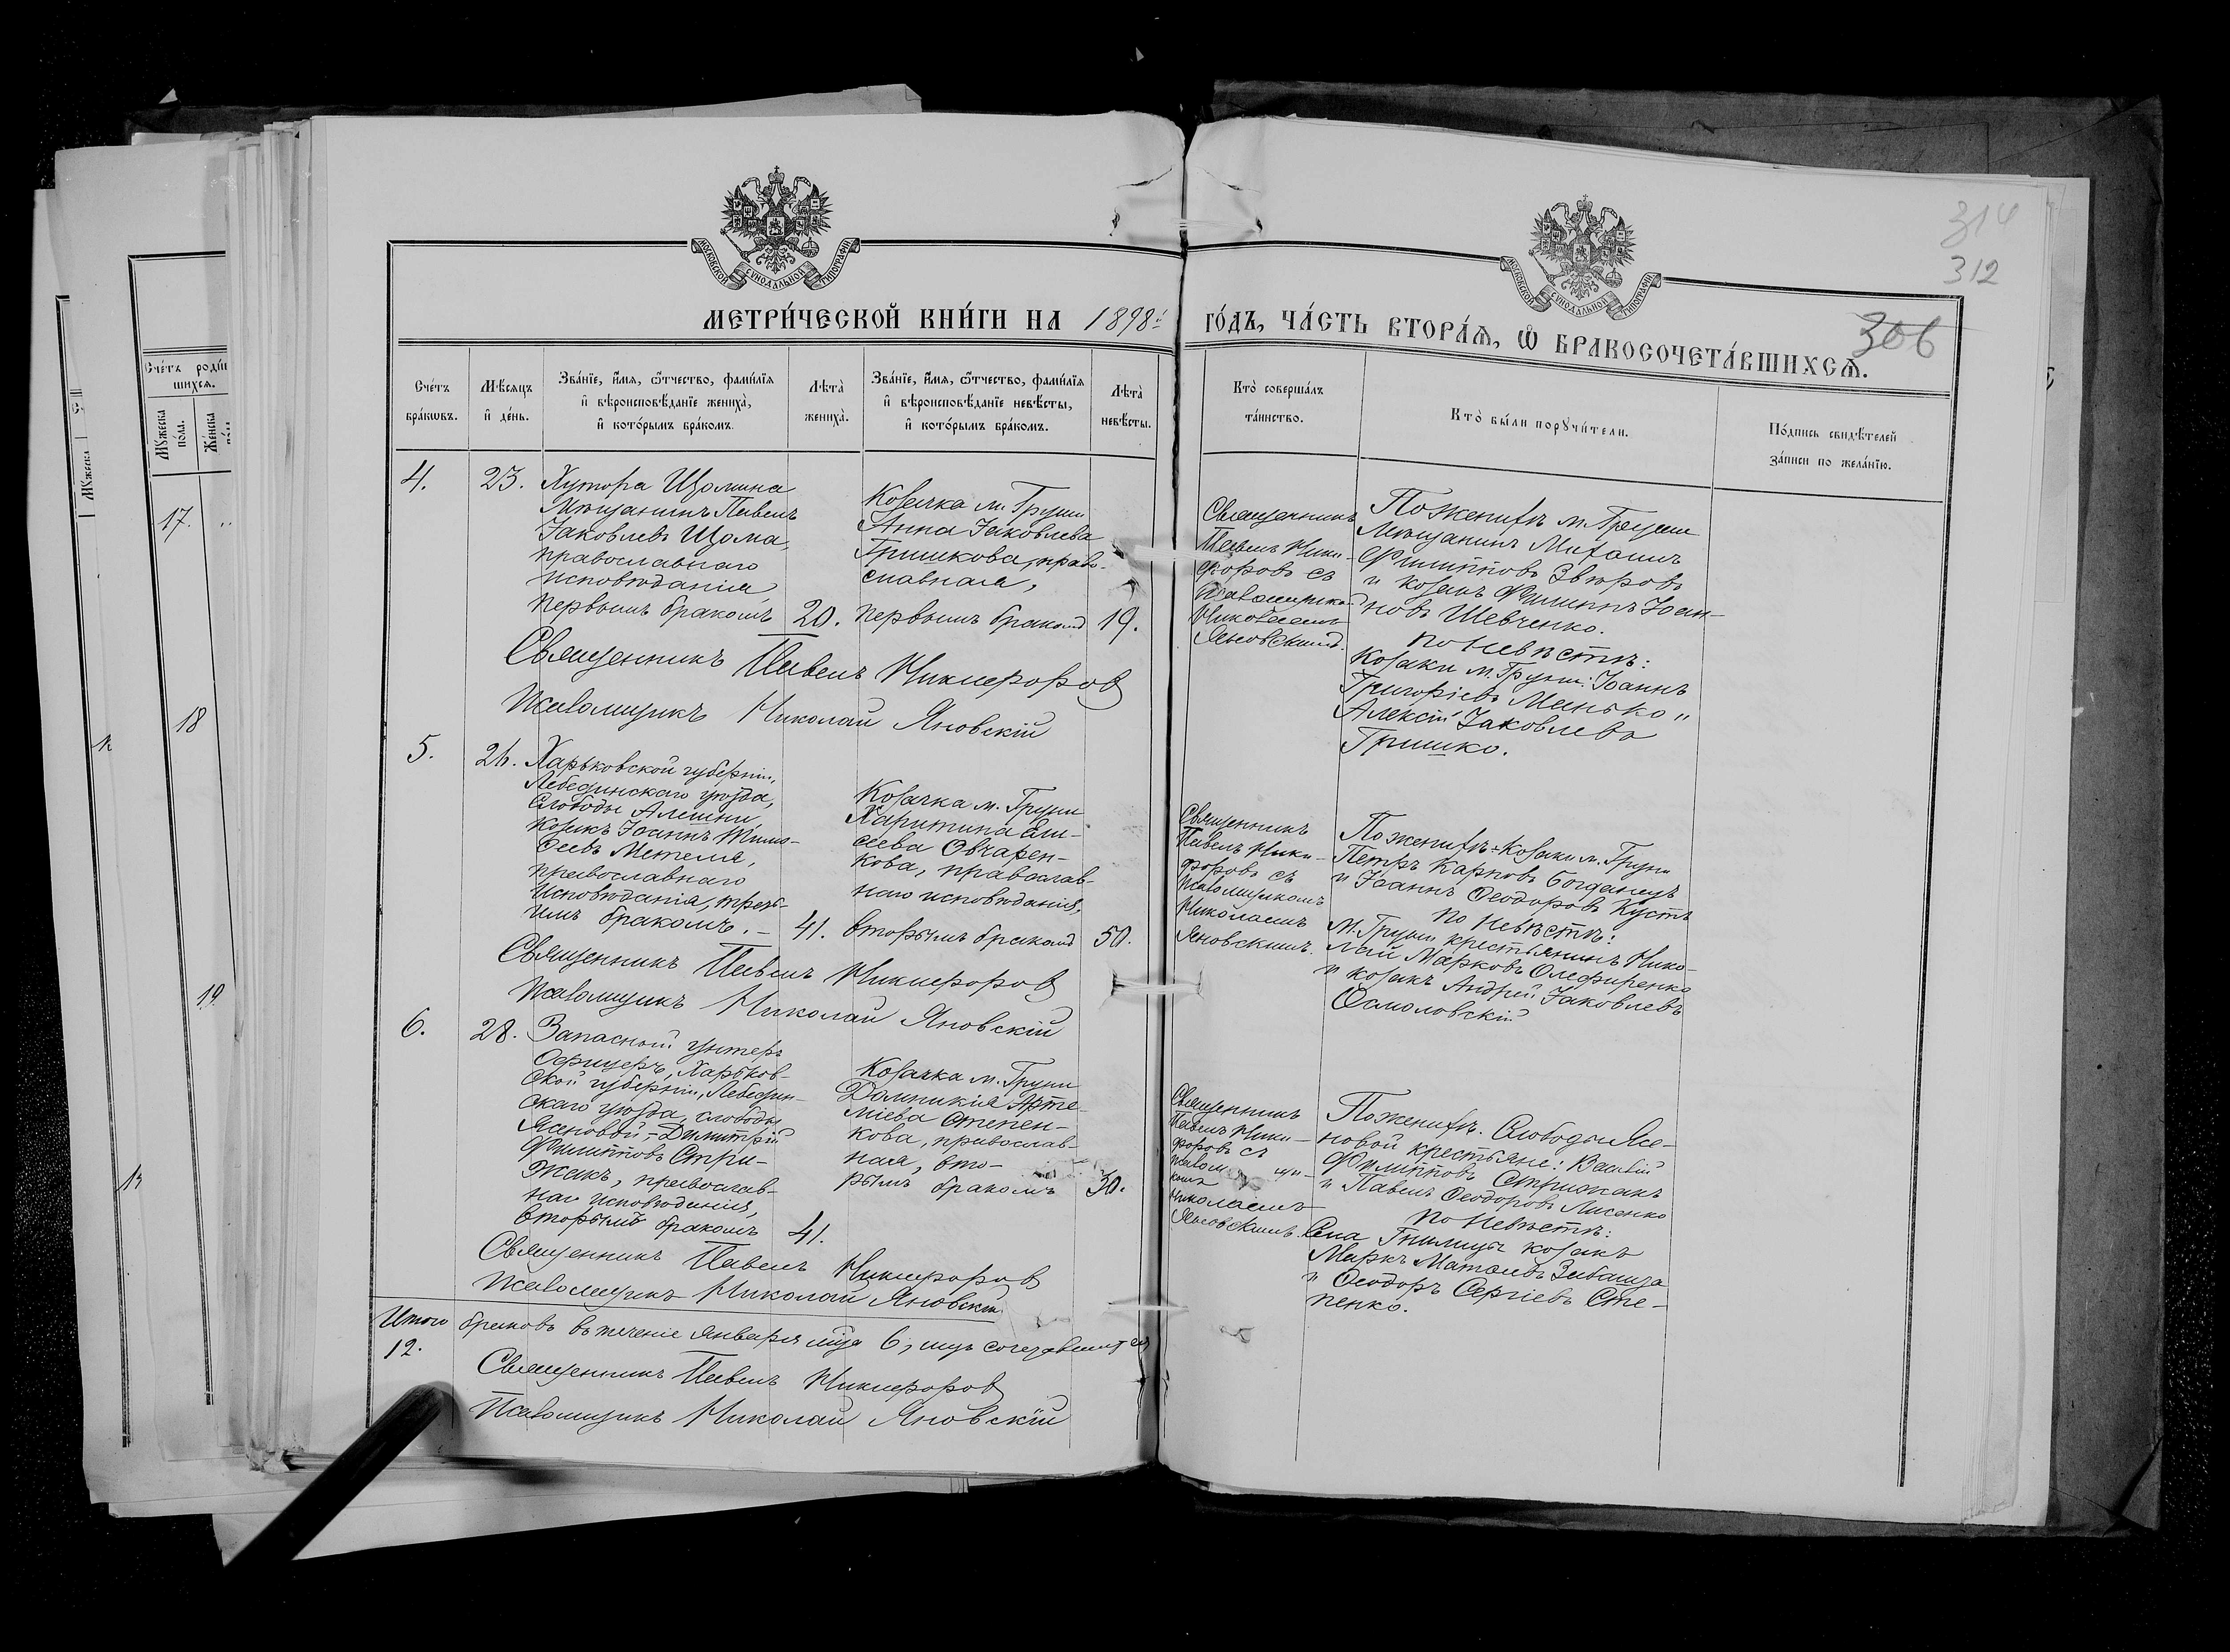 314
312
306
МОСКОВСКОЙ СѴНОДАЛЬНОЙ ТИПОГРАФІИ
МОСКОВСКОЙ СѴНОДАЛЬНОЙ ТИПОГРАФІИ
МЕТРИ́ЧЕСКОЙ КНИ́ГИ НА 1898й ГО́ДЪ, ЧА́СТЬ ВТОРА́Ѧ, Ѡ҆ БРАКОСОЧЕТА́ВШИХСѦ.
Сче́тъ бра́кωвъ.
Мѣ́сяцъ и҆ де́нь.
Зва́нїе, и҆́мя, ѻ҆́тчество, фами́лїя и҆ вѣроисповѣ́данїе жениха̀, и҆ кото́рымъ бра́комъ.
Лѣта̀ жениха̀.
Зва́нїе, и҆́мя, ѻ҆́тчество, фами́лїя и҆ вѣроисповѣ́данїе невѣ́сты, и҆ кото́рымъ бра́комъ.
Лѣта̀ невѣ́сты.
Кто̀ соверша́лъ та́инство.
Кто̀ бы́ли порꙋчи́тели.
По́дпись свидѣ́телей за́писи по жела́нїю.
4.
23.
Хутора Щомина
Мѣщанинъ Павелъ
Іаковлевъ Щома,
православнаго
исповѣданія,
первымъ бракомъ
20.
Козачка м. Груни
Анна Іаковлева
Гришкова, право-
славная,
первымъ бракомъ
19.
Священникъ
Павелъ Ники-
форовъ съ
Николаемъ
Яновскимъ.
По женихѣ м. Груни
Мѣщанинъ Михаилъ
Филипповъ Звѣровъ
и козакъ Филиппъ Іоан-
новъ Шевченко.
По невѣстѣ:
Козаки м. Груни: Іоаннъ
Григоріевъ Манько и
Алексій Іаковлевъ
Гришко.
Священникъ Павелъ Никифоровъ
Псаломщикъ Николай Яновскій
5.
26.
Харьковской губерніи,
Лебединскаго уѣзда,
Слободы Алешни,
Козакъ Іоаннъ Тимо-
феевъ Метеля,
православнаго
исповѣданія, треть-
имъ бракомъ. –
41.
Козачка м. Груни
Харитина Ели-
сеева Овчарен-
кова, православ-
наго исповѣданія,
вторымъ бракомъ
50.
Священникъ
Павелъ Ники-
форовъ съ
Псаломщикомъ
Николаемъ
Яновскимъ.
По женихѣ: Козаки м. Груни
Петръ Карповъ Богданецъ
и Іоаннъ Ѳеодоровъ Кустъ
По невѣстѣ:
М. Груни крестьянинъ Нико-
лай Марковъ Олефиренко
и козакъ Андрей Іаковлевъ
Осмоловскій
Священникъ Павелъ Никифоровъ
Псаломщикъ Николай Яновскій
6.
28.
Запасный унтеръ
Офицеръ, Харьков-
ской губерніи, Лебедин-
скаго уѣзда, слободы
Ясеновой, – Димитрій
Филипповъ Стри-
жакъ, православ-
наго исповѣданія,
вторымъ бракомъ
41.
Козачка м. Груни
Домникія Арте-
міева Степен-
кова, православ-
ная, вто-
рымъ бракомъ
30.
Священникъ
Павелъ Ники-
форовъ съ
Псаломщи-
комъ
Николаемъ
Яновскимъ.
По женихѣ. Слободы Ясе-
новой крестьяне: Василій
Филипповъ Стрижакъ
и Павелъ Ѳеодоровъ Лисенко
По невѣстѣ:
Села Гнилицы козакъ
Маркъ Матѳіевъ Зибаща
и Ѳеодоръ Сергіевъ Сте-
пенко.
Священникъ Павелъ Никифоровъ
Псаломщикъ Николай Яновскій
Итого браковъ въ теченіе Января м-ца 6, лицъ сочетавшихся
12.
Священникъ Павелъ Никифоровъ
Псаломщикъ Николай Яновскій
Сче́тъ роди́в
шихся.
Мꙋжеска по́ла.
Же́нска
17.
18
19